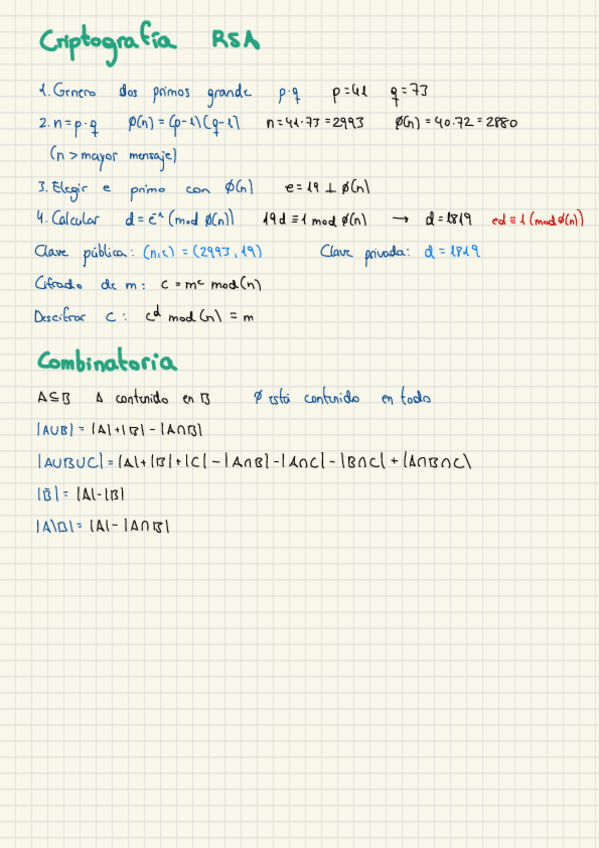 Criptografía RSA
1. Genero dos primos grande p·q p=41 q=73
2. n=p·q ϕ(n)=(p-1)(q-1) n=41·73=2993 ϕ(n)=40·72=2880
(n > mayor mensaje)
3. Elegir e primo con ϕ(n) e=19 ⊥ ϕ(n)
4. Calcular d=e⁻¹ (mod ϕ(n)) 19d≡1 mod ϕ(n) → d=1819 ed≡1 (mod ϕ(n))
Clave pública: (n,e) = (2993,19) Clave privada: d=1819
Cifrado de m: c=mᵉ mod(n)
Descifrar c: cᵈ mod(n) = m
Combinatoria
A⊆B A contenido en B ∅ está contenido en todo
|A∪B| = |A|+|B|-|A∩B|
|A∪B∪C| = |A|+|B|+|C|-|A∩B|-|A∩C|-|B∩C|+|A∩B∩C|
|B̄| = |A|-|B|
|A\B| = |A|-|A∩B|